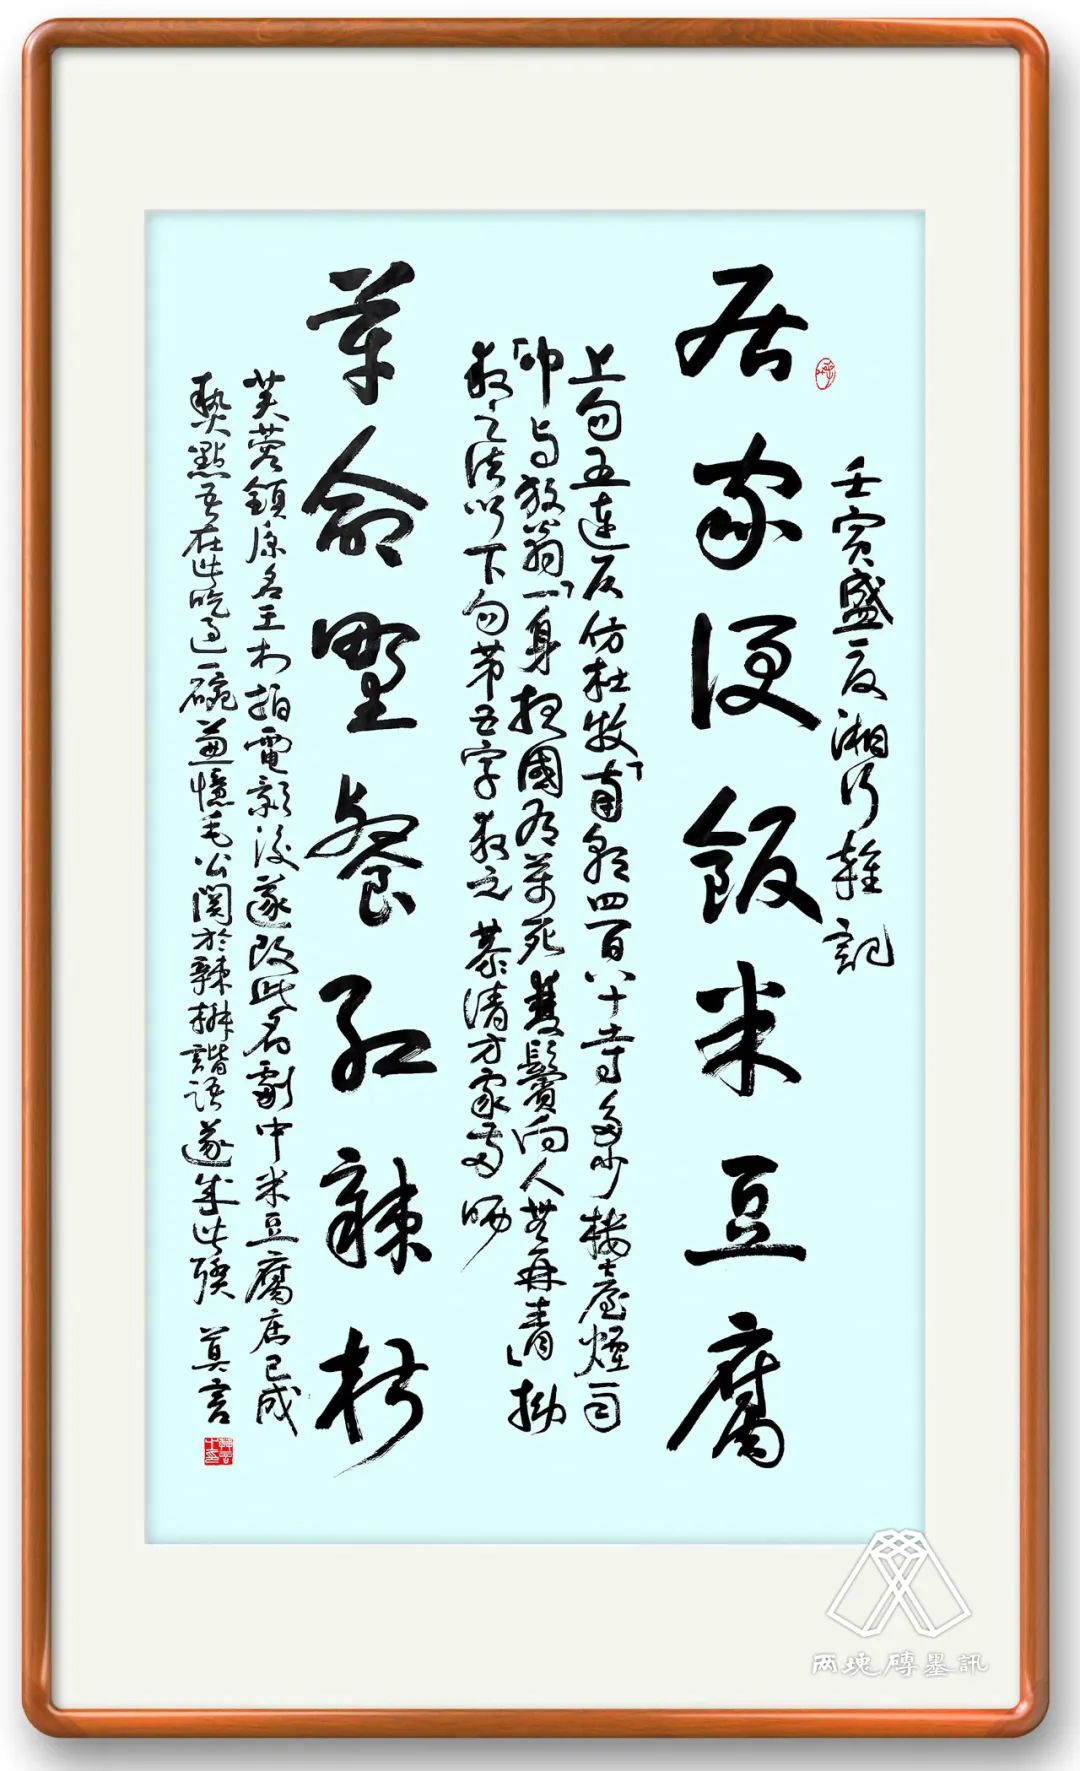 壬寅盛夏湘行雜記
居家便飯米豆腐
上句五連仄仿杜牧「南朝四百八十寺多少樓臺煙雨
中」与放翁「一身报國有萬死雙鬢向人無再青」拗
救之法以下句第五字救之恭請方家
革命野餐紅辣椒
芙蓉鎮原名王村拍電影後遂改此名劇中米豆腐店已成
熱點吾在此吃過一碗兼憶毛公関於辣椒諧語遂成此聯 莫言
两塊磚墨訊